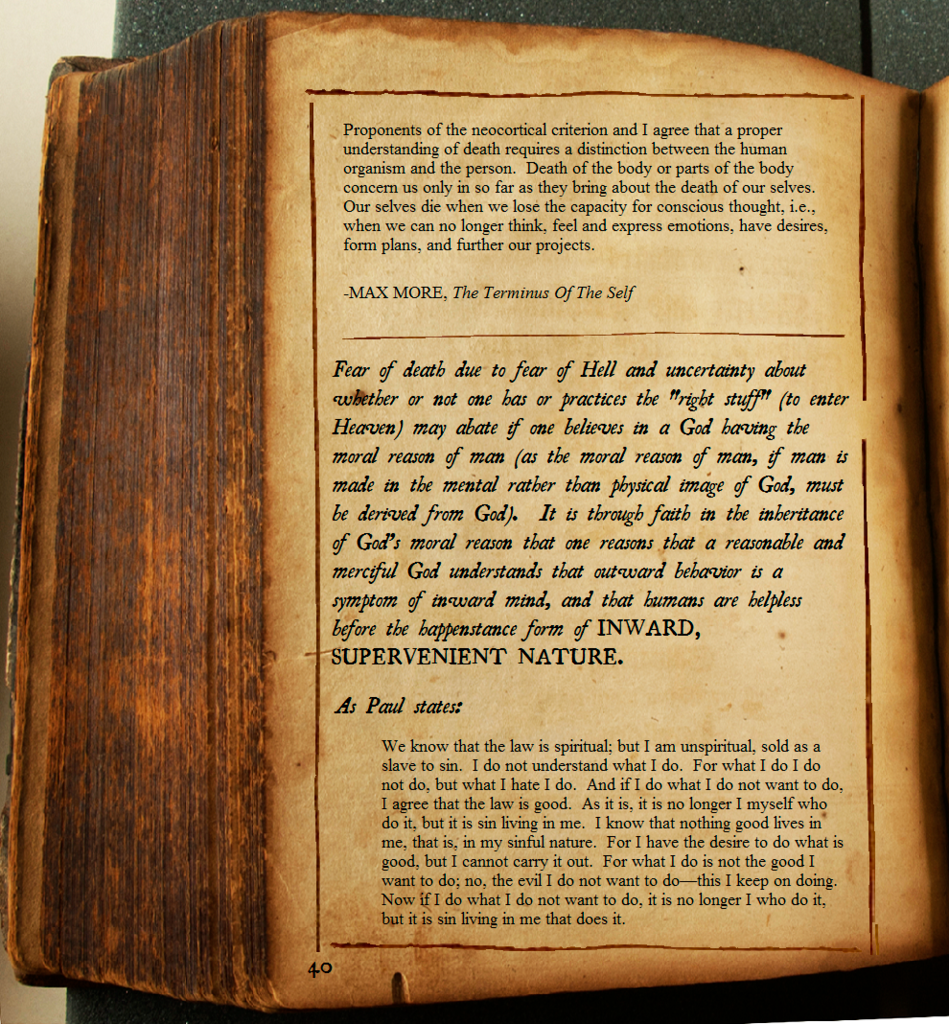 Proponents of the neocortical criterion and I agree that a proper
understanding of death requires a distinction between the human
organism and the person.  Death of the body or parts of the body
concern us only in so far as they bring about the death of our selves.
Our selves die when we lose the capacity for conscious thought, i.e.,
when we can no longer think, feel and express emotions, have desires,
form plans, and further our projects.
-MAX MORE, The Terminus Of The Self
Fear of death due to fear of Hell and uncertainty about
whether or not one has or practices the "right stuff" (to enter
Heaven) may abate if one believes in a God having the
moral reason of man (as the moral reason of man, if man is
made in the mental rather than physical image of God, must
be derived from God).  It is through faith in the inheritance
of God's moral reason that one reasons that a reasonable and
merciful God understands that outward behavior is a
symptom of inward mind, and that humans are helpless
before the happenstance form of INWARD,
SUPERVENIENT NATURE.
As Paul states:
We know that the law is spiritual; but I am unspiritual, sold as a
slave to sin.  I do not understand what I do.  For what I do I do
not do, but what I hate I do.  And if I do what I do not want to do,
I agree that the law is good.  As it is, it is no longer I myself who
do it, but it is sin living in me.  I know that nothing good lives in
me, that is, in my sinful nature.  For I have the desire to do what is
good, but I cannot carry it out.  For what I do is not the good I
want to do; no, the evil I do not want to do—this I keep on doing.
Now if I do what I do not want to do, it is no longer I who do it,
but it is sin living in me that does it.
40